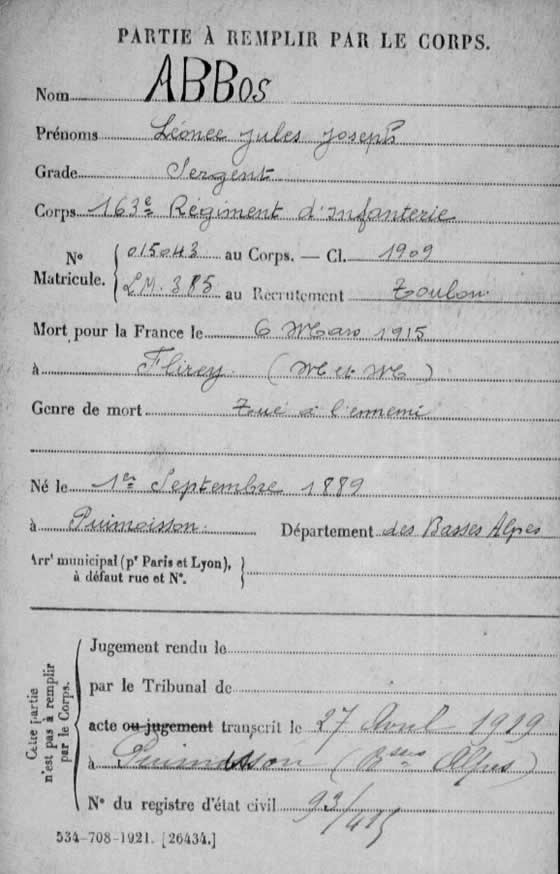 PARTIE À REMPLIR PAR LE CORPS.
Nom ABBOS
Prénoms Léonce Jules Joseph
Grade Sergent
Corps 163e Régiment d'infanterie
No Matricule. 015043 au Corps. — Cl. 1909
LM. 385 au Recrutement Toulon
Mort pour la France le 6 Mars 1915
à Flirey (M et M)
Genre de mort Tué à l'ennemi
Né le 1er Septembre 1889
à Puimoisson. Département des Basses Alpes
Arrt municipal (pr Paris et Lyon),
à défaut rue et No.
Cette partie
n'est pas à remplir
par le Corps.
Jugement rendu le
par le Tribunal de
acte ou jugement transcrit le 27 Avril 1919
à Puimoisson (Bses Alpes)
No du registre d'état civil 93/415
534-708-1921. [26434.]